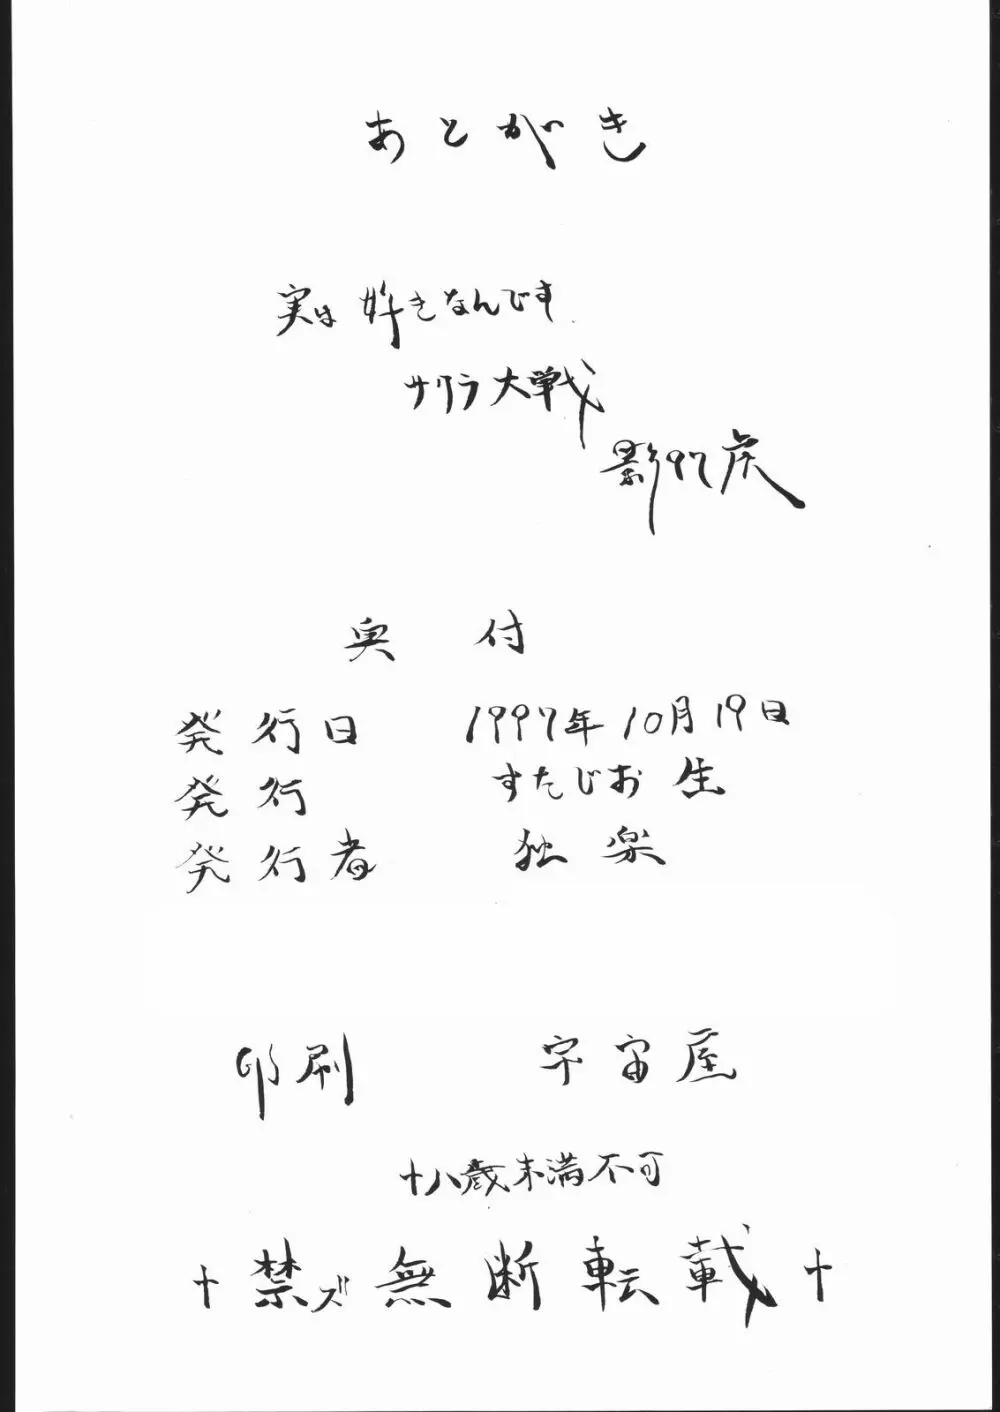 あとがき
実は好きなんです
サクラ大戦
影97虎
奥付
発行日 1997年10月19日
発行 すたじお生
発行者 独楽
印刷 宇宙屋
十八歳未満不可
十禁ズ無断転載十